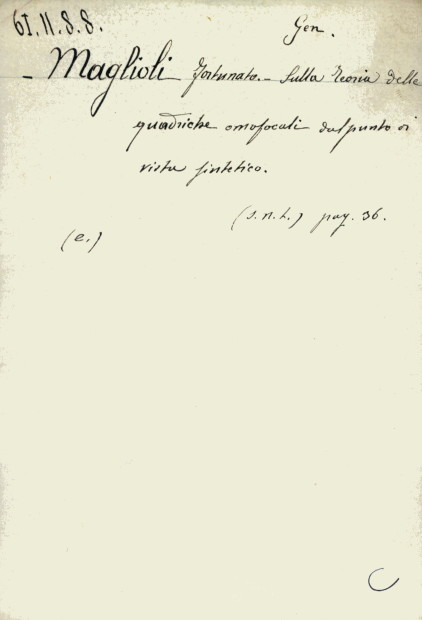 61.11.8.8.
Gen.
- Maglioli Fortunato. - Sulla Teoria delle
quadriche omofocali dal punto di
vista sintetico.
(s.n.t.) pag. 36.
(e.)